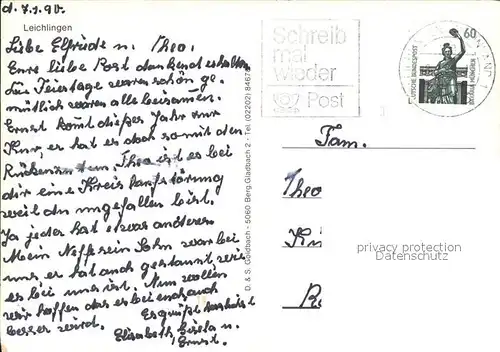 d. 7.1.90.
Leichlingen
Liebe Elfriede u. Theo.
Eure liebe Post dankend erhalten
Die Feiertage waren schön ge-
mütlich waren alle beisamen.
Ernst komt dießes Jahr zur
Kur, er hat es doch so mit den
Rücken Theo ist es bei
dir eine Kreislaufstörung
weil du umgefallen bist.
Ja jeder hat etwas anderes
Mein Neffe sein Sohn war bei
uns er hat auch gestaunt wie
es bei uns ist. Nun wollen
wir hoffen das es bei euch auch
besser wird. Es grüßt
Elisabeth, Gisela u.
Ernst.
D. & S. Goldbach - 5060 Berg. Gladbach 2 - Tel. (02202) 84678
Schreib
mal
wieder
Post
60
DEUTSCHE BUNDESPOST
BAVARIA MÜNCHEN
Fam.
Theo
privacy protection
Datenschutz